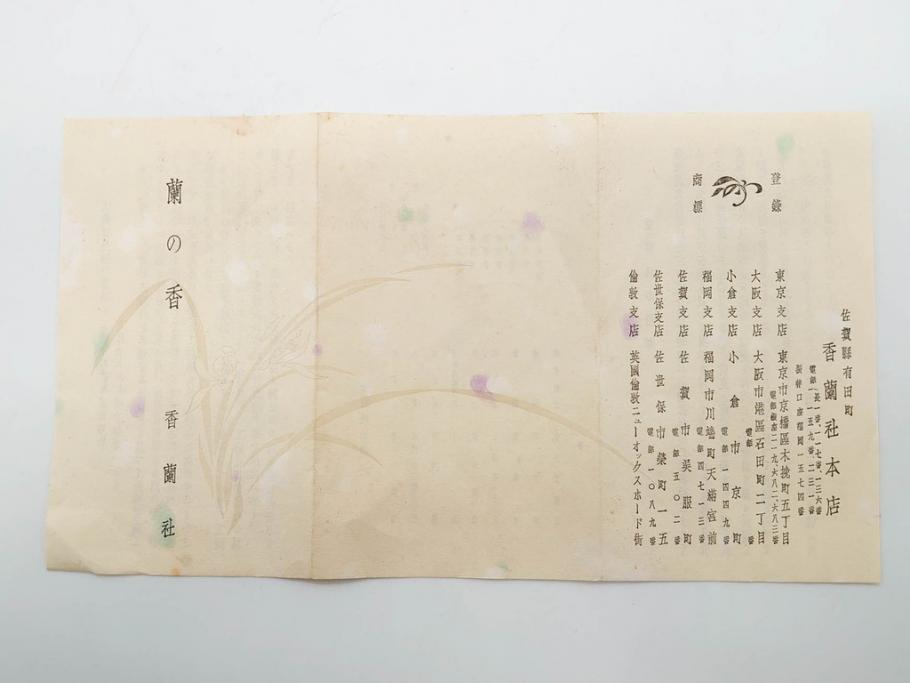 登錄
商標
佐賀縣有田町
香蘭社本店
電話(長一番、一一七番、一三六番
一五九番、二三一番
振替口座福岡一五七四番
東京支店 東京市京橋區木挽町五丁目
大阪支店 大阪市港區石田町二丁目
小倉支店 小倉市京町
電話一四四九番
福岡支店 福岡市川端町天滿宮前
電話四七一三番
佐賀支店 佐賀市吳服町
電話五〇二番
佐世保支店 佐世保市榮町一五
電話一〇八九番
倫敦支店 英國倫敦ニューオックスホード街
蘭の香
香蘭社